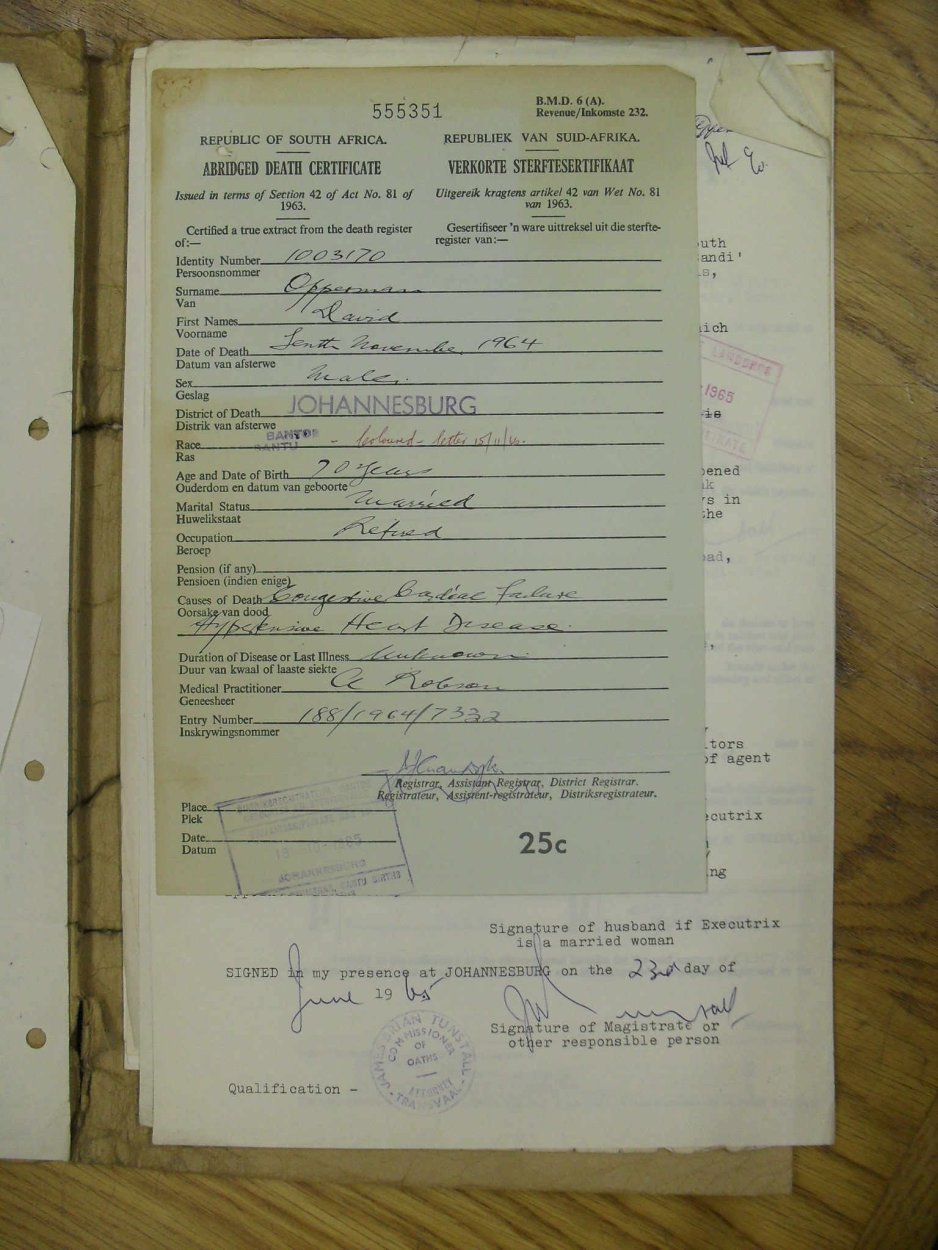 555351
B.M.D. 6 (A).
Revenue/Inkomste 232.
REPUBLIC OF SOUTH AFRICA.
ABRIDGED DEATH CERTIFICATE
Issued in terms of Section 42 of Act No. 81 of
1963.
Certified a true extract from the death register
of:—
REPUBLIEK VAN SUID-AFRIKA.
VERKORTE STERFTESERTIFIKAAT
Uitgereik kragtens artikel 42 van Wet No. 81
van 1963.
Gesertifiseer 'n ware uittreksel uit die sterfte-
register van:—
Identity Number 1003170
Persoonsnommer
Surname Opperman
Van
First Names David
Voorname
Date of Death Tenth November 1964
Datum van afsterwe
Sex Male.
Geslag
District of Death JOHANNESBURG
Distrik van afsterwe
BANTOE
BANTU
Race - Coloured - letter 15/11/
Ras
Age and Date of Birth 70 years
Ouderdom en datum van geboorte
Marital Status Married
Huwelikstaat
Occupation Retired
Beroep
Pension (if any)
Pensioen (indien enige)
Causes of Death Congestive Cardiac Failure
Oorsake van dood
Hypertensive Heart Disease.
Duration of Disease or Last Illness Unknown
Duur van kwaal of laaste siekte
Medical Practitioner Robson
Geneesheer
Entry Number 188/1964/7332
Inskrywingsnommer
Registrar, Assistant Registrar, District Registrar.
Registrateur, Assistent-registrateur, Distriksregistrateur.
Place
Plek
Date
Datum
JOHANNESBURG
BANTU BIRTHS
25c
uth
andi'
s,
ich
LANDDROS
1965
is
ened
k
s in
the
ad,
tors
of agent
ecutrix
ng
Signature of husband if Executrix
is a married woman
SIGNED in my presence at JOHANNESBURG on the 23rd day of
June 1965
Signature of Magistrate or
other responsible person
JAMES BRIAN TUNSTALL
COMMISSIONER
OF
OATHS
ATTORNEY
TRANSVAAL
Qualification -